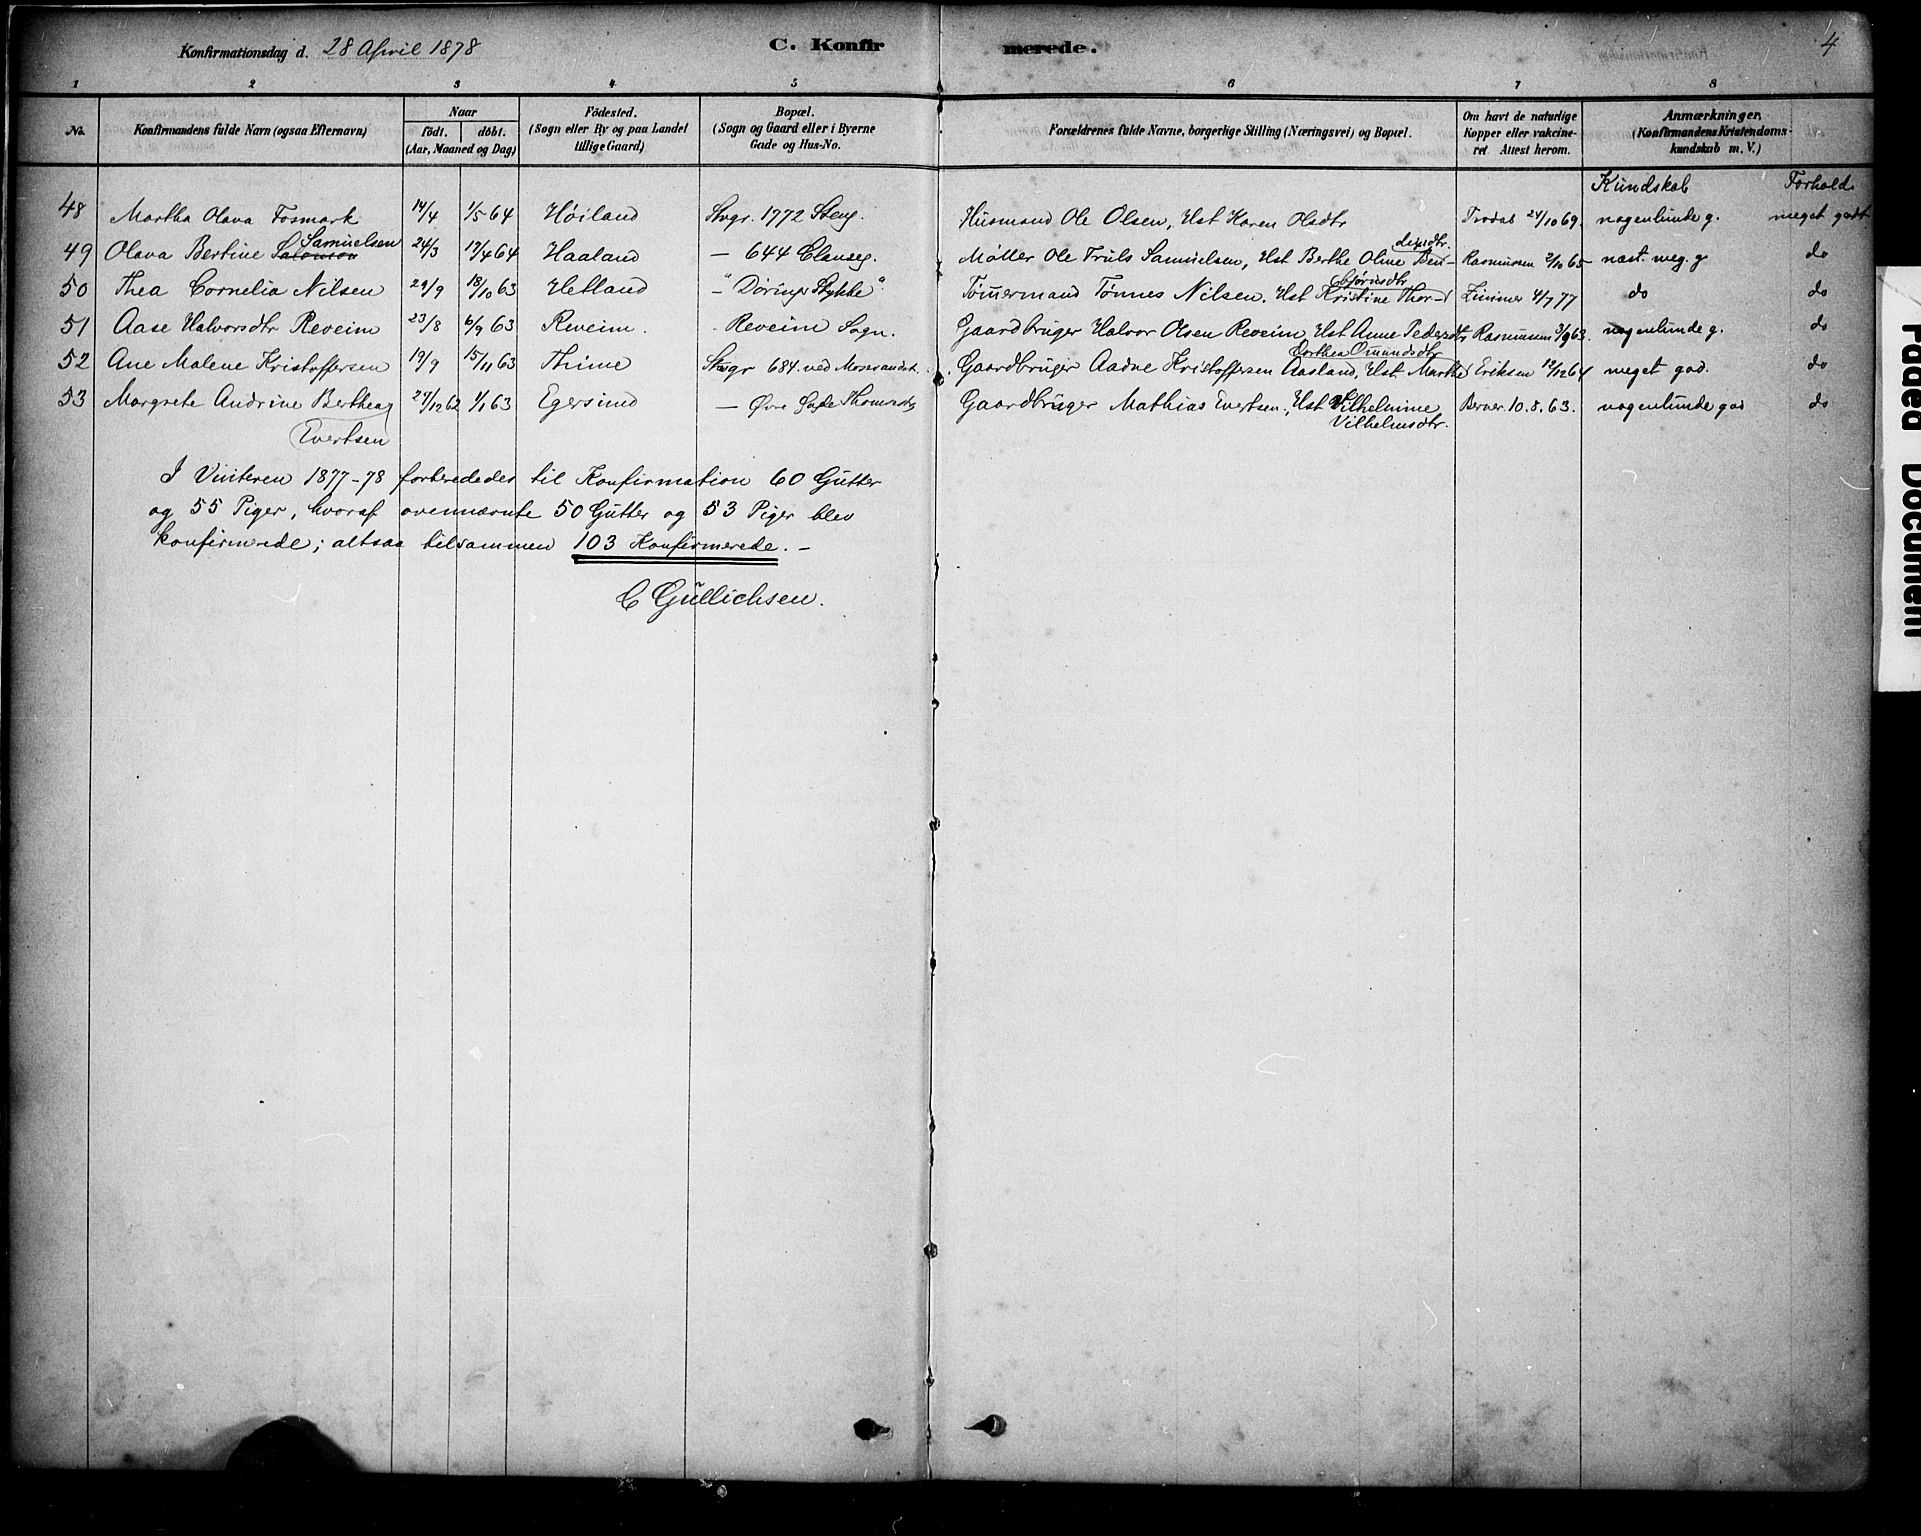 Konfirmationsdag d. 28 April 1878 C. Konfirmerede. 4
1 2 3 4 5 6 7 8
No. Konfirmandens fulde Navn (ogsaa Efternavn) Naar födt. döbt. (Aar, Maaned og Dag) Födested. (Sogn eller By og paa Landet tillige Gaard) Bopæl. (Sogn og Gaard eller i Byerne Gade og Hus-No. Forældrenes fulde Navne, borgerlige Stilling (Næringsvei) og Bopæl. Om havt de naturlige Kopper eller vakcineret Attest herom. Anmærkninger. (Konfirmandens Kristendomskundskab m. V.)
Kundskab Forhold
48 Martha Olava Fosmark 14/4 1/5 64 Höiland Svgr. 1772 Steng. Husmand Ole Olsen, Hst Karen Olsdtr 24/10 69. nogenlunde g. meget godt
49 Olava Bertine Salomon Samuelsen 24/3 17/4 64 Haaland — 644 Møller Ole Truls Samuelsen, Hst Berthe Oline Ben- dixsdtr. Rasmussen 2/10 65 næst. meg. g do
50 Thea Cornelia Nilsen 29/9 18/10 63 Hetland - "Dörings Stykke" Tømmermand Tønnes Nilsen. Hst Kristine Thor- bjørnsdtr Zimmer 4/7 77 do do
51 Aase Halvorsdtr Reveim 23/8 6/9 63 Reveim. - Reveim Sogn. Gaardbruger Halvor Olsen Reveim Hst Anne Pedersdtr Rasmussen 3/9 63. nogenlunde g. do
52 Ane Malene Kristoffersen 19/9 15/11 63 Thime Svgr 684. ved Mosevandet. Gaardbruger Aadne Kristoffersen Aasland, Hst Marthe Dorthea Omundsdtr Eriksen 12/12 64 meget god. do
53 Margrete Andrine Berthea 27/12 62 1/1 63 Egersund — Øvre Gaardbruger Mathias Evertsen, Hst Vilhelmine Berner. 10.8.63. nogenlunde god do
Evertsen Vilhelmsdtr.
I Vinteren 1877-78 forberededes til Konfirmation 60 Gutter
og 55 Piger, hvoraf ovennævnte 50 Gutter og 53 Piger blev
konfirmerede; altsaa tilsammen 103 Konfirmerede. —
C Gullichsen.
Faded Document